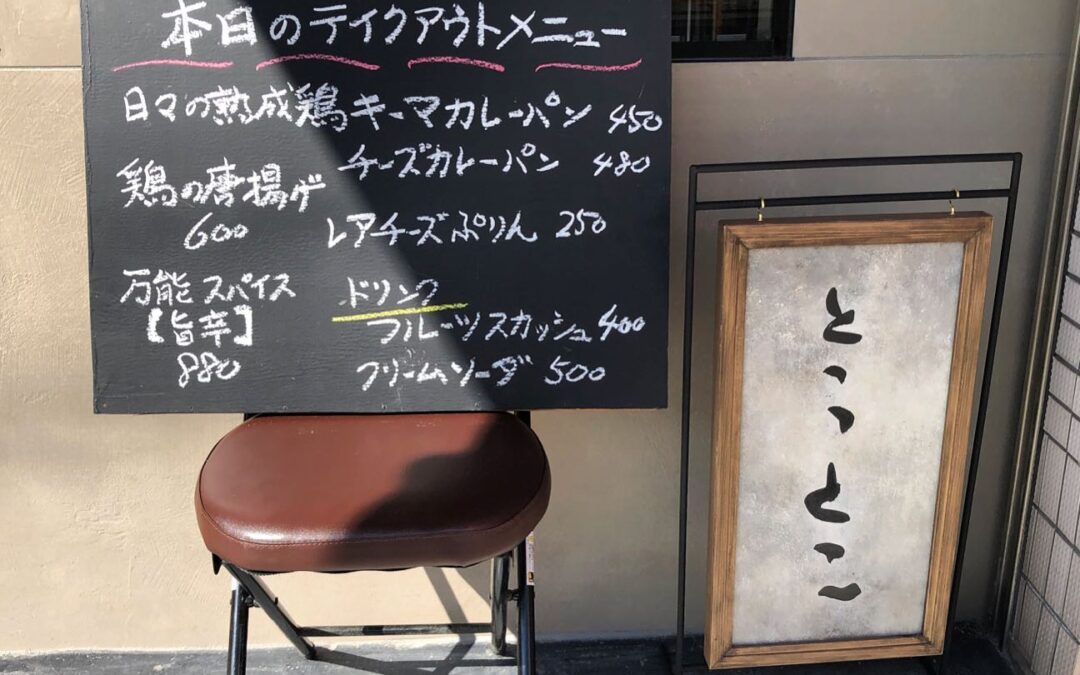 本日のテイクアウトメニュー
日々の熟成鶏キーマカレーパン 450
チーズカレーパン 480
鶏の唐揚げ
600
レアチーズぷりん 250
万能スパイス
【旨辛】
880
ドリンク
フルーツスカッシュ 400
クリームソーダ 500
とっとこ